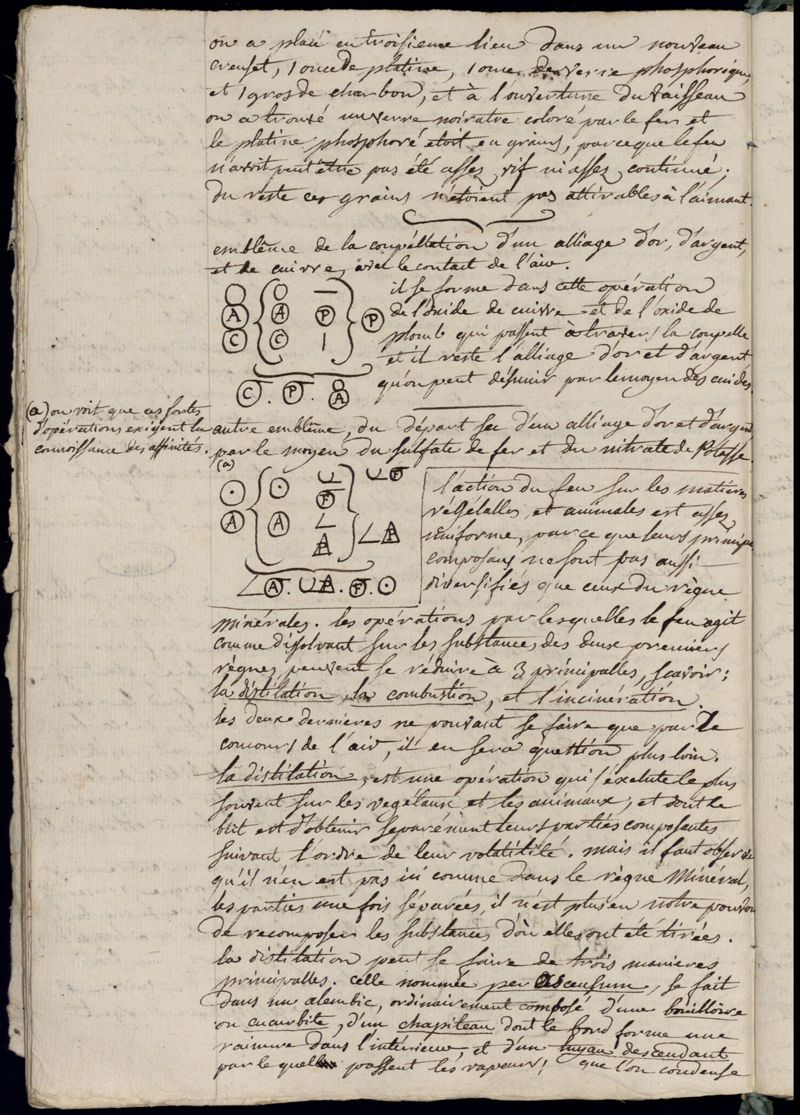 on a placé en troisieme lieu dans un nouveau
creuset, 1 once de platine, 1 once de verre phosphorique,
et 1 gros de charbon, et à l'ouverture du vaisseau
on a trouvé un verre noiratre coloré par le fer et
le platine phosphoré etoit en grains, parceque le feu
n'avoit peut être pas été assés vif ni assés continué;
du reste ces grains n'étoient pas attirables à l'aimant.
emblême de la coupéllation d'un alliage d'or, d'argent,
et de cuivre, avec le contact de l'air.
il se forme dans cette opération
de l'oxide de cuivre et de l'oxide de
plomb qui passent à travers la coupelle
et il reste l'alliage d'or et d'argent
qu'on peut désunir par le moyen des acides.
A A P P
C C
C. P. A
(a) on voit que ces sortes
d'opérations exigent la
connoissance des affinités.
autre emblême, du départ sec d'un alliage d'or et d'argent
par le moyen du sulfate de fer et du nitrate de Potasse.
(a)
l'action du feu sur les matieres
végétalles et animales est assés
uniforme, parce que leurs principes
composans ne sont pas aussi
diversifiés que ceux du règne
minérales. les opérations par lesquelles le feu agit
comme dissolvant sur les substances des deux premiers
règnes peuvent se réduire à 3 principalles, scavoir:
la distilation, la combustion, et l'incinération.
les deux dernieres ne pouvant se faire que par le
concours de l'air, il en sera question plus loin.
la distilation, est une opération qui s'éxécute le plus
souvent sur les vegétaux et les animaux, et dont le
but est d'obtenir separément leurs parties composantes
suivant l'ordre de leur volatilité. mais il faut observer
qu'il n'en est pas ici comme dans le règne Minéral,
les parties une fois séparées, il n'est plus en notre pouvoir
de recomposer les substances d'où elles ont été tirées.
la distilation peut se faire de trois manieres
principalles. celle nommée per ascensum, se fait
dans un alembic, ordinairement composé d'une bouilloire
ou cucurbite, d'un chapiteau dont le bord forme une
rainure dans l'intérieur et d'un tuyau descendant
par le quel passent les vapeurs, que l'on condense